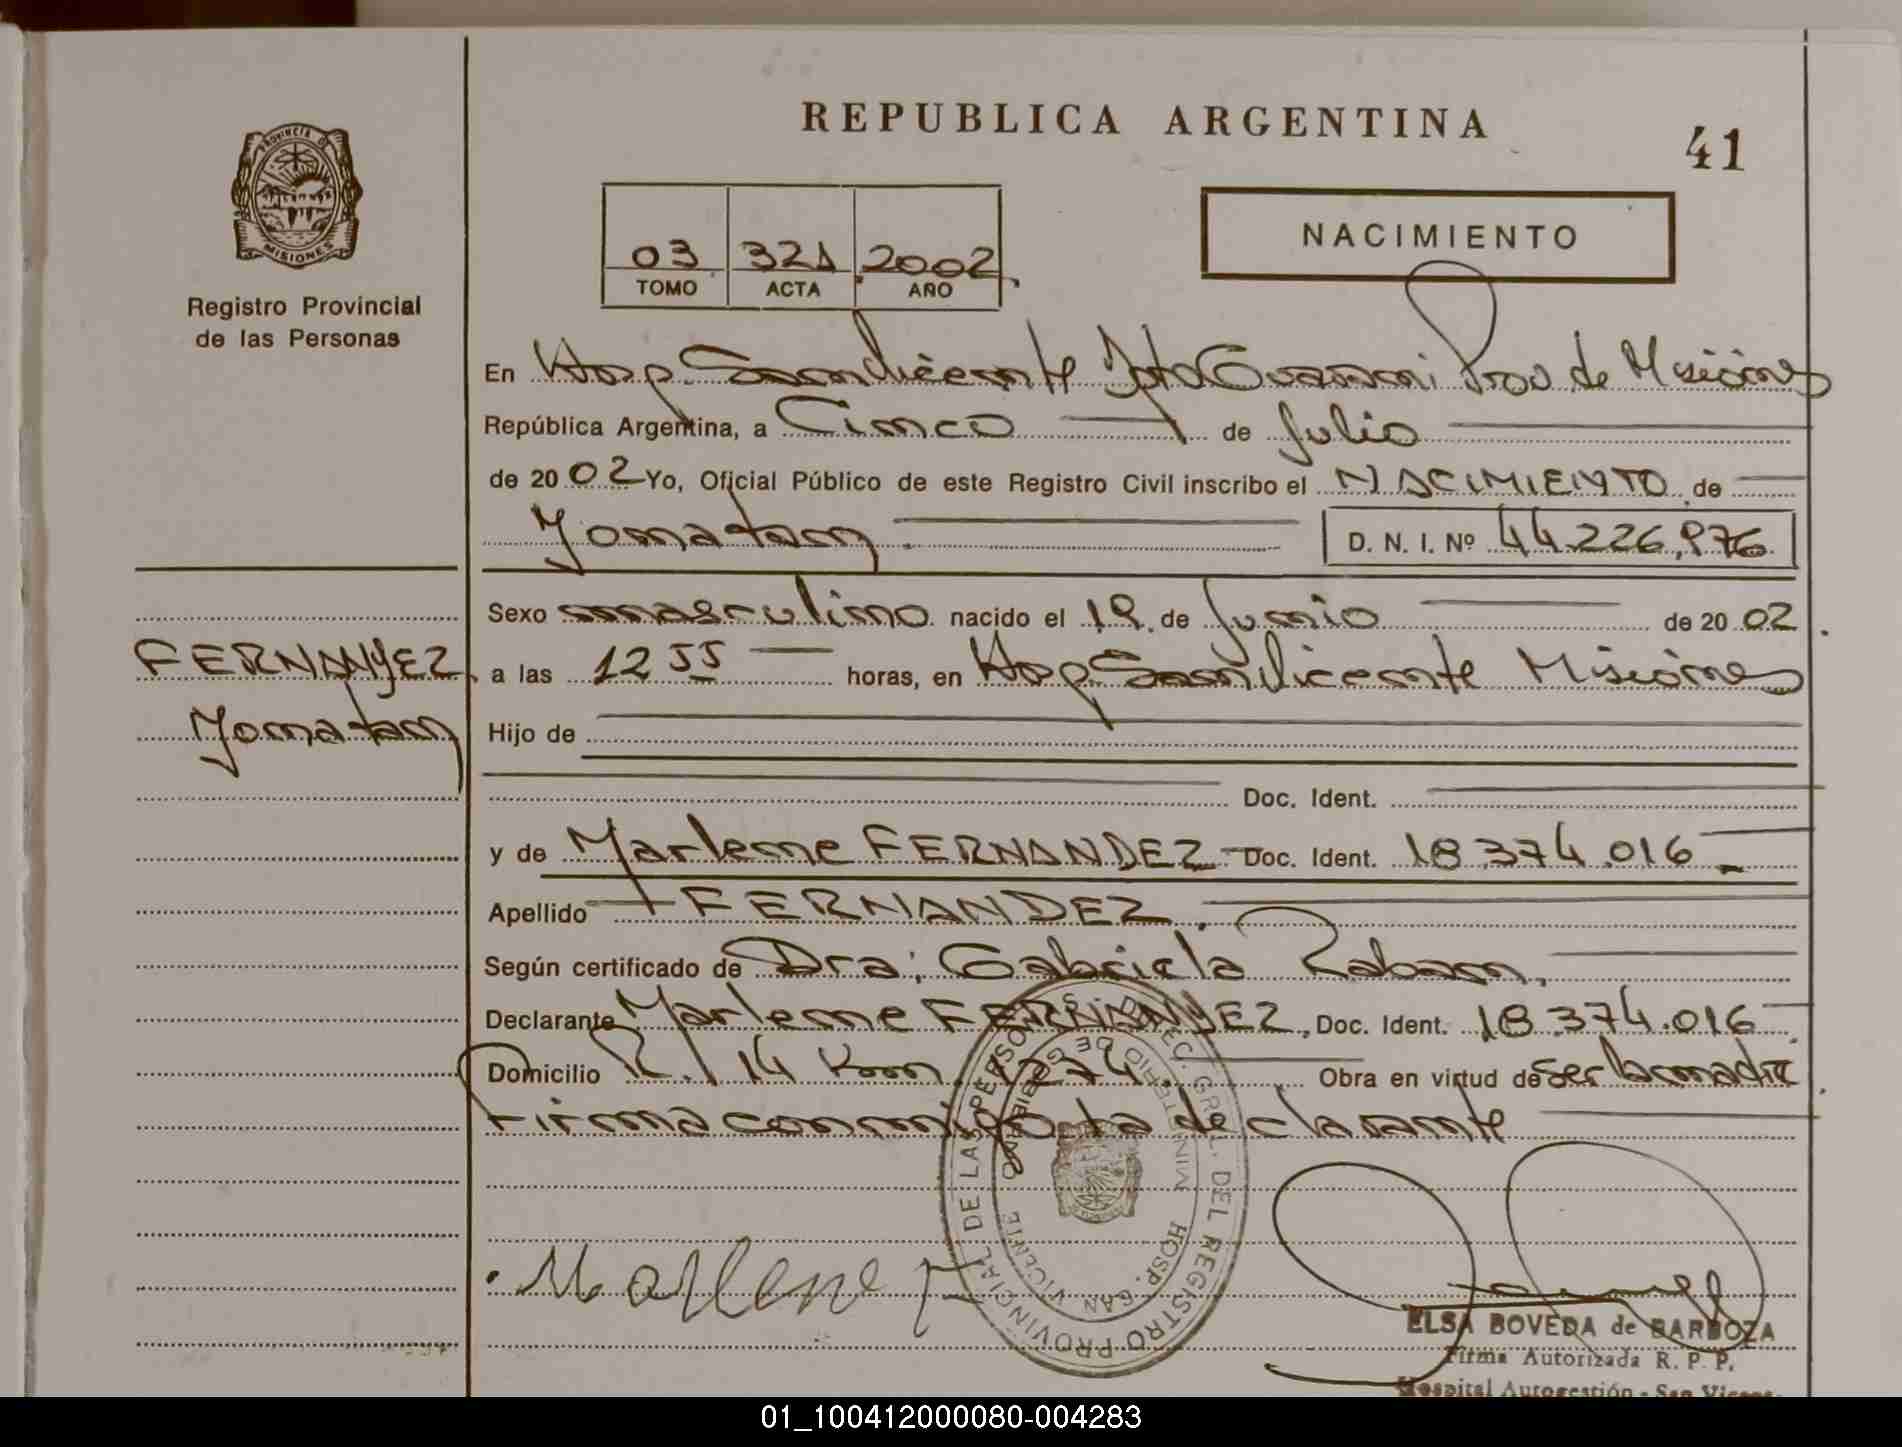 REPUBLICA ARGENTINA
41
PROVINCIA DE
MISIONES
Registro Provincial
de las Personas
03 321 2002
TOMO ACTA AÑO
NACIMIENTO
En Hosp. San Vicente Dpto Guarani Prov de Misiones
República Argentina, a Cinco de Julio
de 2002 Yo, Oficial Público de este Registro Civil inscribo el NACIMIENTO de
Yonatan D. N. I. Nº 44.226.976
Sexo masculino nacido el 19 de Junio de 2002
FERNANDEZ
Yonatan
a las 12 55 horas, en Hosp San Vicente Misiones
Hijo de
Doc. Ident.
y de Marlene FERNANDEZ Doc. Ident. 18.374.016
Apellido FERNANDEZ
Según certificado de Dra: Gabriela
Declarante Marlene FERNANDEZ, Doc. Ident. 18.374.016
Domicilio R. 14 Km. 1274. Obra en virtud de ser la madre
Firma conmigo la declarante
DIREC. GRAL. DEL REGISTRO PROVINCIAL DE LAS PERSONAS
MINISTERIO DE GOBIERNO
HOSP. SAN VICENTE
Marlene F
ELSA BOVEDA de BARBOZA
Firma Autorizada R. P. P.
Hospital Autogestión - San Vicente
01_100412000080-004283